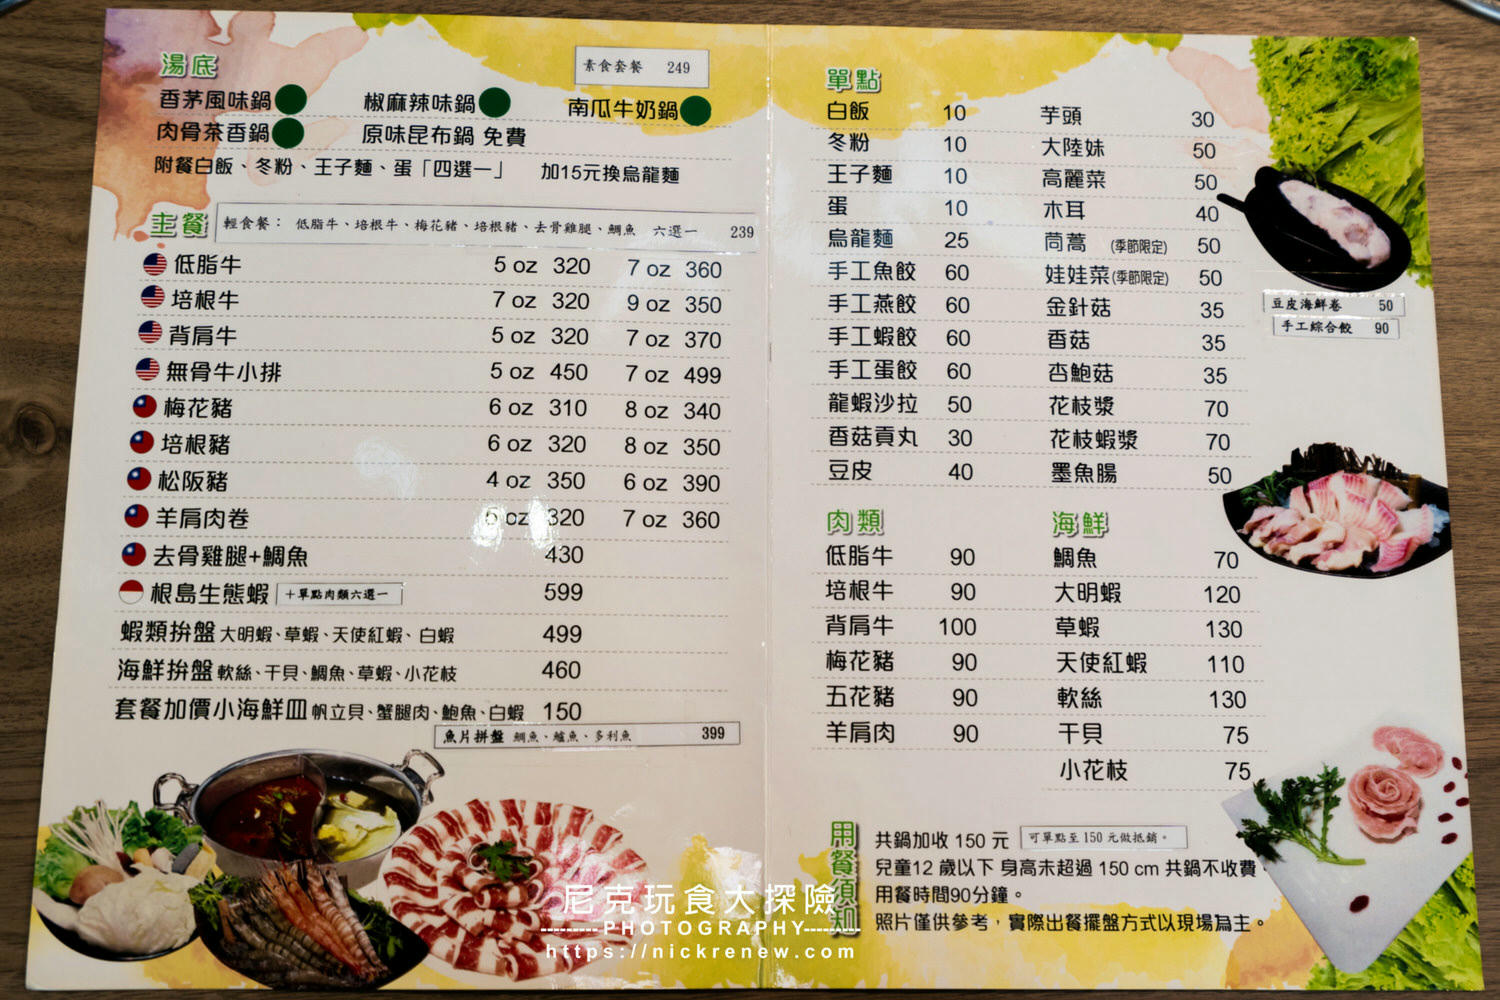 湯底
素食套餐 249
香茅風味鍋 椒麻辣味鍋 南瓜牛奶鍋
肉骨茶香鍋 原味昆布鍋 免費
附餐白飯、冬粉、王子麵、蛋「四選一」 加15元換烏龍麵
主餐
輕食餐： 低脂牛、培根牛、梅花豬、培根豬、去骨雞腿、鯛魚 六選一 239
低脂牛 5 oz 320 7 oz 360
培根牛 7 oz 320 9 oz 350
背肩牛 5 oz 320 7 oz 370
無骨牛小排 5 oz 450 7 oz 499
梅花豬 6 oz 310 8 oz 340
培根豬 6 oz 320 8 oz 350
松阪豬 4 oz 350 6 oz 390
羊肩肉卷 oz 320 7 oz 360
去骨雞腿+鯛魚 430
根島生態蝦 +單點肉類六選一 599
蝦類拚盤 大明蝦、草蝦、天使紅蝦、白蝦 499
海鮮拚盤 軟絲、干貝、鯛魚、草蝦、小花枝 460
套餐加價小海鮮皿 帆立貝、蟹腿肉、鮑魚、白蝦 150
魚片拼盤 鯛魚、鱸魚、多利魚 399
單點
白飯 10
冬粉 10
王子麵 10
蛋 10
烏龍麵 25
手工魚餃 60
手工燕餃 60
手工蝦餃 60
手工蛋餃 60
龍蝦沙拉 50
香菇貢丸 30
豆皮 40
芋頭 30
大陸妹 50
高麗菜 50
木耳 40
茼蒿 (季節限定) 50
娃娃菜(季節限定) 50
金針菇 35
香菇 35
杏鮑菇 35
花枝漿 70
花枝蝦漿 70
墨魚腸 50
豆皮海鮮卷 50
手工綜合餃 90
肉類
低脂牛 90
培根牛 90
背肩牛 100
梅花豬 90
五花豬 90
羊肩肉 90
海鮮
鯛魚 70
大明蝦 120
草蝦 130
天使紅蝦 110
軟絲 130
干貝 75
小花枝 75
用餐須知
共鍋加收 150 元 可單點至150元做抵銷。
兒童12 歲以下 身高未超過 150 cm 共鍋不收費。
用餐時間90分鐘。
照片僅供參考，實際出餐擺盤方式以現場為主。
尼克玩食大探險
PHOTOGRAPHY
https://nickrenew.com